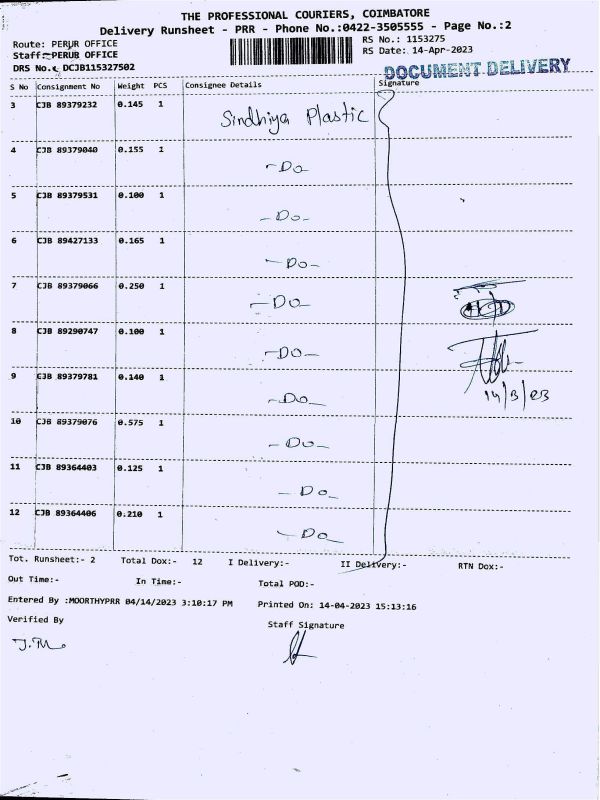 THE PROFESSIONAL COURIERS, COIMBATORE
Delivery Runsheet - PRR - Phone No.:0422-3505555 - Page No.:2
Route: PERUR OFFICE
RS No.: 1153275
Staff:PERUR OFFICE
RS Date: 14-Apr-2023
DRS No.: DCJB115327502
DOCUMENT DELIVERY
S No Consignment No Weight PCS Consignee Details Signature
3 CJB 89379232 0.145 1 Sindhiya Plastic
4 CJB 89379040 0.155 1 -Do-
5 CJB 89379531 0.100 1 -Do-
6 CJB 89427133 0.165 1 -Do-
7 CJB 89379066 0.250 1 -Do-
8 CJB 89290747 0.100 1 -Do-
9 CJB 89379781 0.140 1 -Do-
14/3/23
10 CJB 89379076 0.575 1 -Do-
11 CJB 89364403 0.125 1 -Do-
12 CJB 89364406 0.210 1 -Do-
Tot. Runsheet:- 2 Total Dox:- 12 I Delivery:- II Delivery:- RTN Dox:-
Out Time:- In Time:- Total POD:-
Entered By :MOORTHYPRR 04/14/2023 3:10:17 PM Printed On: 14-04-2023 15:13:16
Verified By Staff Signature